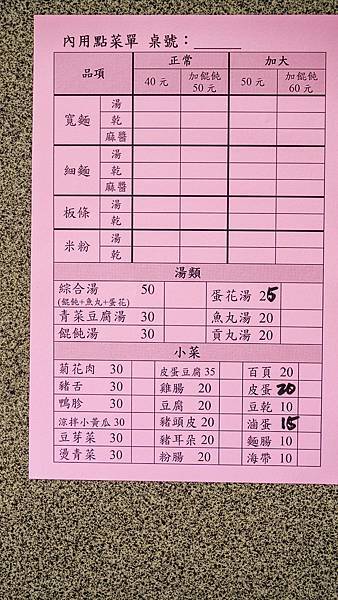 內用點菜單 桌號：
品項 正常 加大
40元 加餛飩50元 50元 加餛飩60元
寬麵 湯
乾
麻醬
細麵 湯
乾
麻醬
板條 湯
乾
米粉 湯
乾
湯類
綜合湯 50 蛋花湯 25
(餛飩+魚丸+蛋花)
青菜豆腐湯 30 魚丸湯 20
餛飩湯 30 貢丸湯 20
小菜
菊花肉 30 皮蛋豆腐35 百頁 20
豬舌 30 雞腸 20 皮蛋 20
鴨胗 30 豆腐 20 豆乾 10
涼拌小黃瓜 30 豬頭皮 20 滷蛋 15
豆芽菜 30 豬耳朵 20 麵腸 10
燙青菜 30 粉腸 20 海帶 10